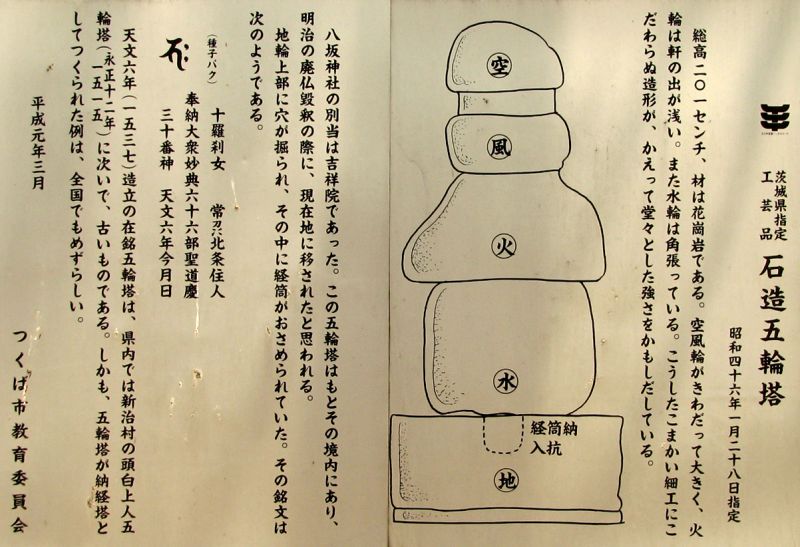 茨城県指定
工芸品
石造五輪塔
昭和四十六年一月二十八日指定
総高二〇一センチ、材は花崗岩である。空風輪がきわだって大きく、火
輪は軒の出が浅い。また水輪は角張っている。こうしたこまかい細工にこ
だわらぬ造形が、かえって堂々とした強さをかもしだしている。
空
風
火
水
経筒納
入抗
地
八坂神社の別当は吉祥院であった。この五輪塔はもとその境内にあり、
明治の廃仏毀釈の際に、現在地に移されたと思われる。
地輪上部に穴が掘られ、その中に経筒がおさめられていた。その銘文は
次のようである。
十羅刹女 常州北条住人
(種子バク) 奉納大衆妙典六十六部聖道慶
三十番神 天文六年今月日
天文六年(一五三七)造立の在銘五輪塔は、県内では新治村の頭白上人五
輪塔(永正十二年)(一五一五)に次いで、古いものである。しかも、五輪塔が納経塔と
してつくられた例は、全国でもめずらしい。
平成元年三月
つくば市教育委員会